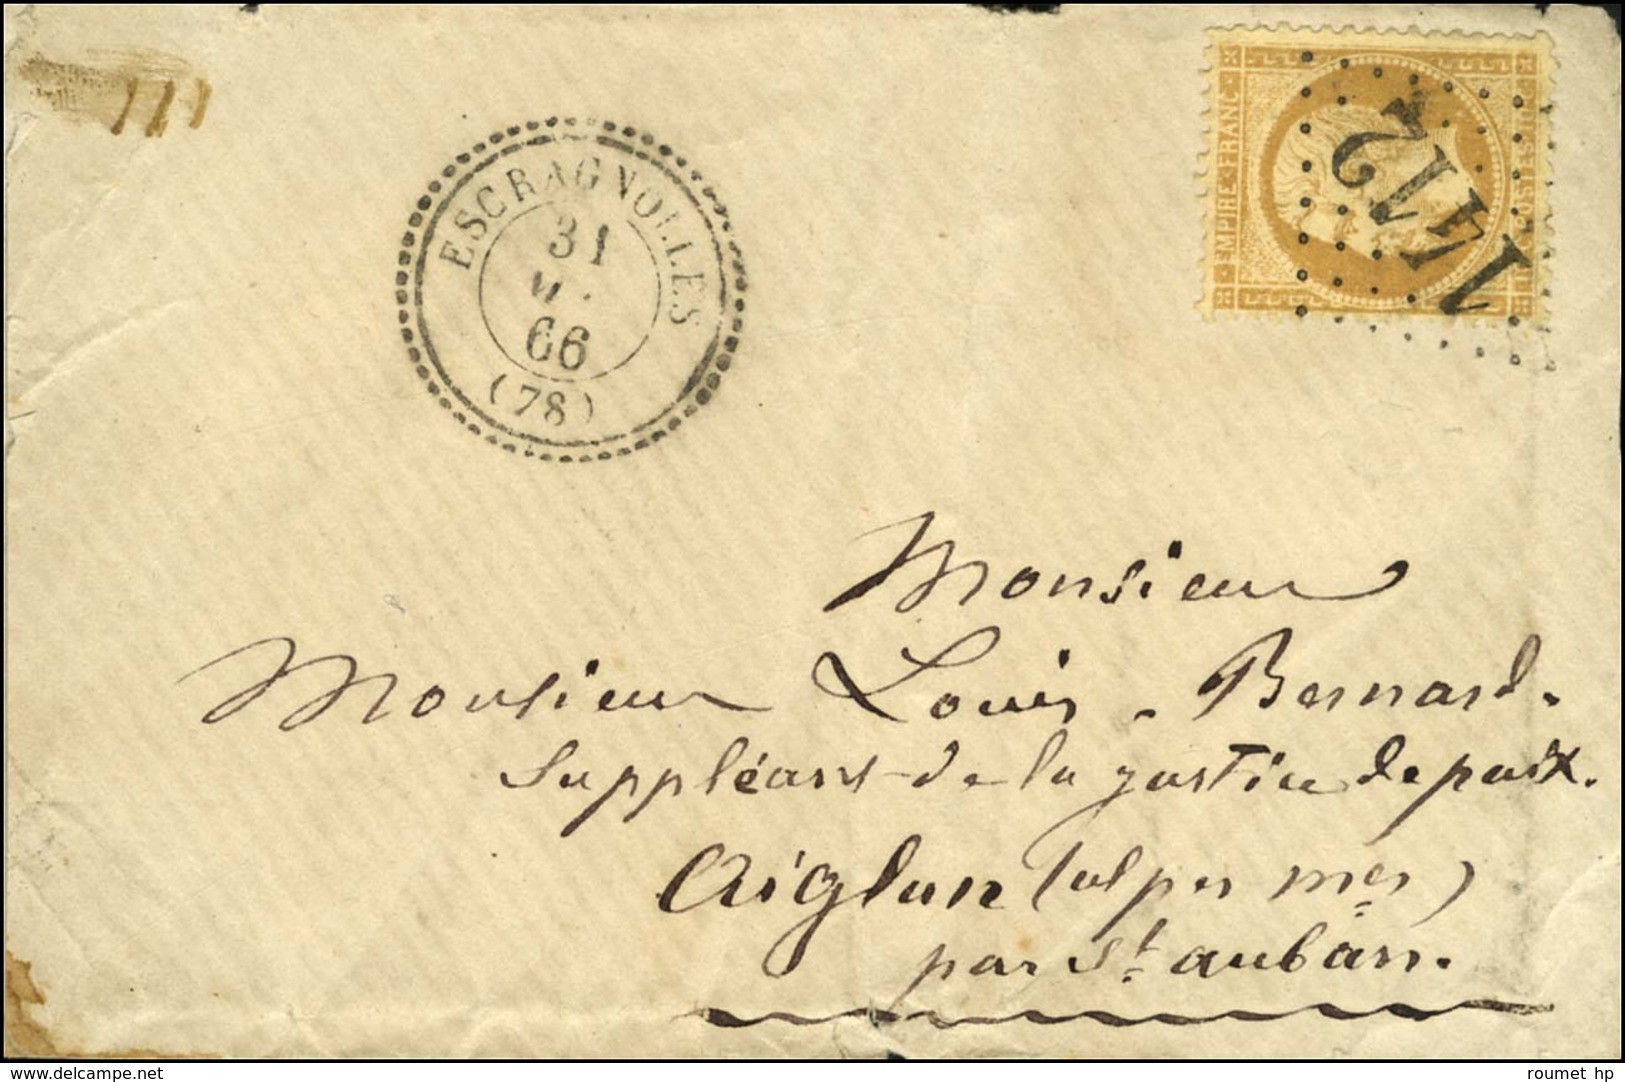 ESCRAGNOLLES
31
66
(78)
EMPIRE·FRANC·
1412
Monsieur
Monsieur Louis - Bernard.
Suppléant de la justice de paix.
Aiglun (alpes mmes)
par St auban.
www.delcampe.net
roumet hp